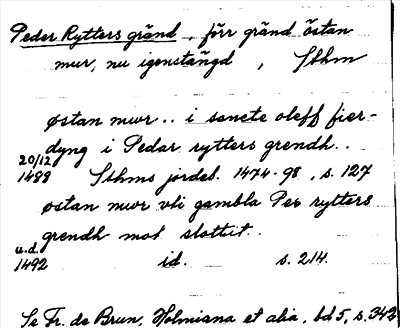 Peder Rytters gränd, förr gränd östan
mur, nu igenstängd, Sthm
østan mwr.. i sancte oleff fier-
dyng i Pedar rytters grendh..
20/12
1488 Sthms jordeb. 1474-98, s. 127
østan mwr vti gambla Per rytters
grendh mot slottit..
u.d.
1492 id. s. 214.
Se Fr. de Brun, Holmiana et alia, bd 5, s. 342